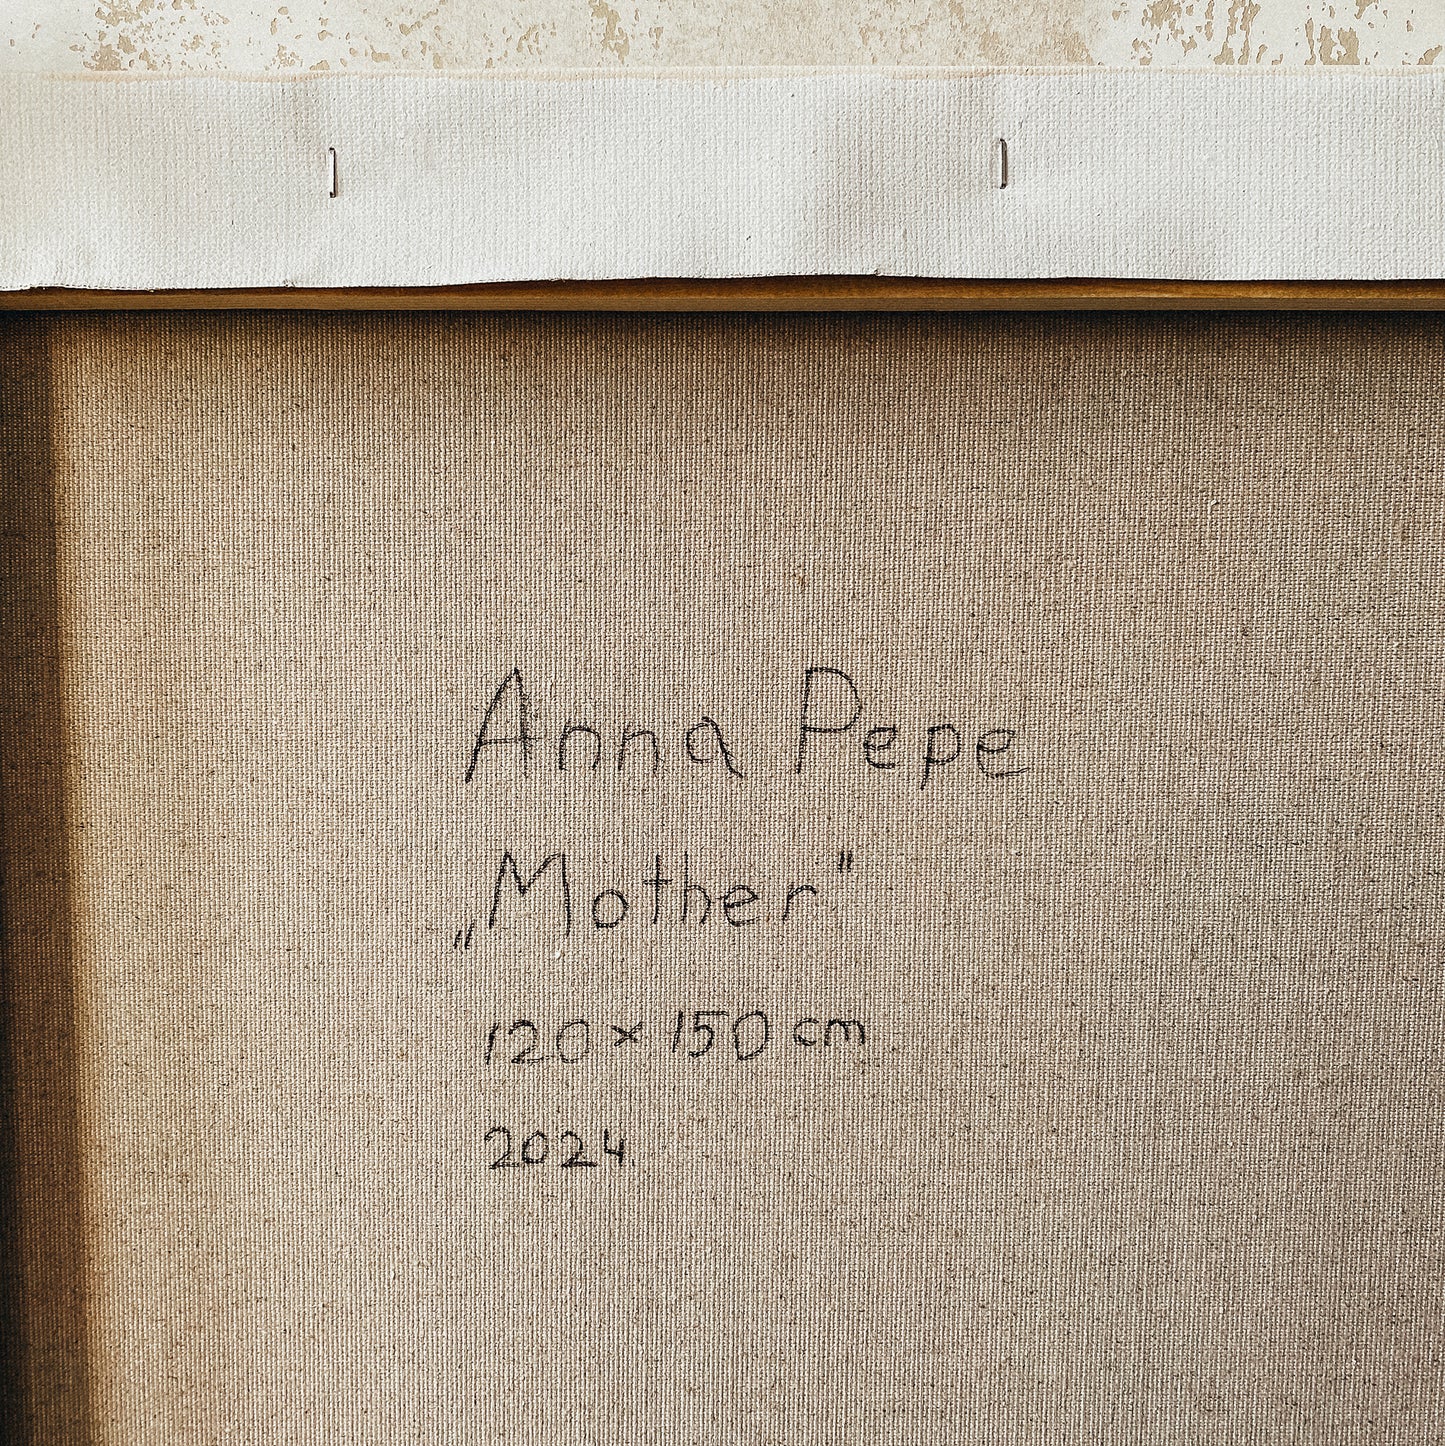 Anna Pepe
„Mother"
120 × 150 cm
2024